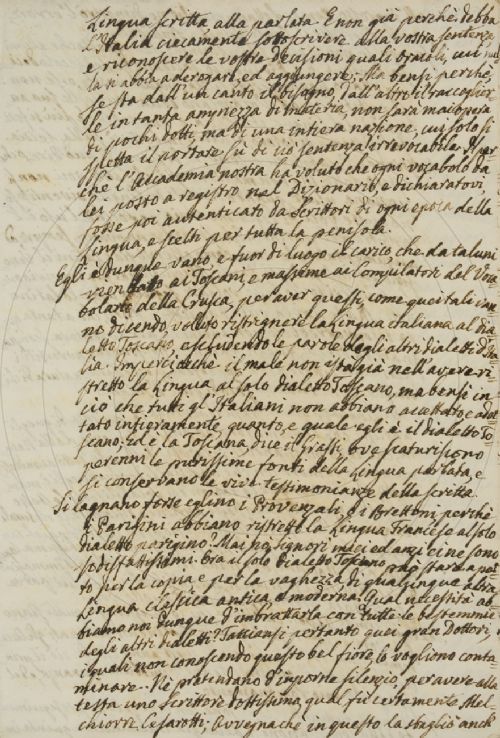 Lingua scritta alla parlata. E non già perchè debba
l'Italia ciecamente sottoscrivere alla vostra sentenza
e riconoscere le vostre decisioni quali oracoli, cui nul
la si abbia a derogare, ed aggiungere; Ma bensì perchè,
se sta dall'un canto il bisogno, dall'altro il raccoglier
le in tanta ampiezza di materia, non sarà mai opera
di pochi dotti, ma di una intiera nazione, cui solo si
spetta il portare su di ciò sentenza irrevocabile.
chè l'Accademia nostra ha voluto che ogni vocabolo da
lei posto a registro nel Dizionario, e dichiaratovi
fosse poi autenticato da Scrittori di ogni epoca della
Lingua, e scelti per tutta la penisola.
Egli è dunque vano e fuor di luogo il carico che da taluni
vien dato ai Toscani, e massime ai Compilatori del Voca
bolario della Crusca, per aver questi, come quei tali van
no dicendo, voluto ristrignere la Lingua italiana al dia
letto Toscano, escludendo le parole degli altri dialetti d'Ita
lia. Imperciocchè il male non istà già nell'avere ri
stretto la Lingua al solo dialetto Toscano, ma bensì in
ciò che tutti gl'Italiani non abbiano accettato e adot
tato intieramente quanto, e quale egli è il dialetto To
scano; ed è la Toscana, dice il Grassi, ove scaturiscono
perenni le purissime fonti della Lingua parlata, e
si conservano le vive testimonianze della scritta.
Si lagnano forse eglino i Provenzali, e i Brettoni perchè
i Parigini abbiano ristretto la Lingua Francese al solo
dialetto parigino? Mai no, Signori miei ed anzi ei ne sono
sodisfattissimi. Ora il solo dialetto Toscano può stare a pet
to per la copia e per la vaghezza di qualunque altra
Lingua classica antica e moderna. Qual necessità ab
biamo noi dunque d'imbrattarla con tutte le bestemmie
degli altri dialetti? Tacciansi pertanto quei gran Dottori,
i quali non conoscendo questo bel fiore lo vogliono conta
minare. Nè pretendano d'imporne silenzio, per avere alla
testa uno Scrittore dottissimo, qual fu certamente Mel
chiorre Cesarotti; Avvegnachè in questo la sbagliò anch'